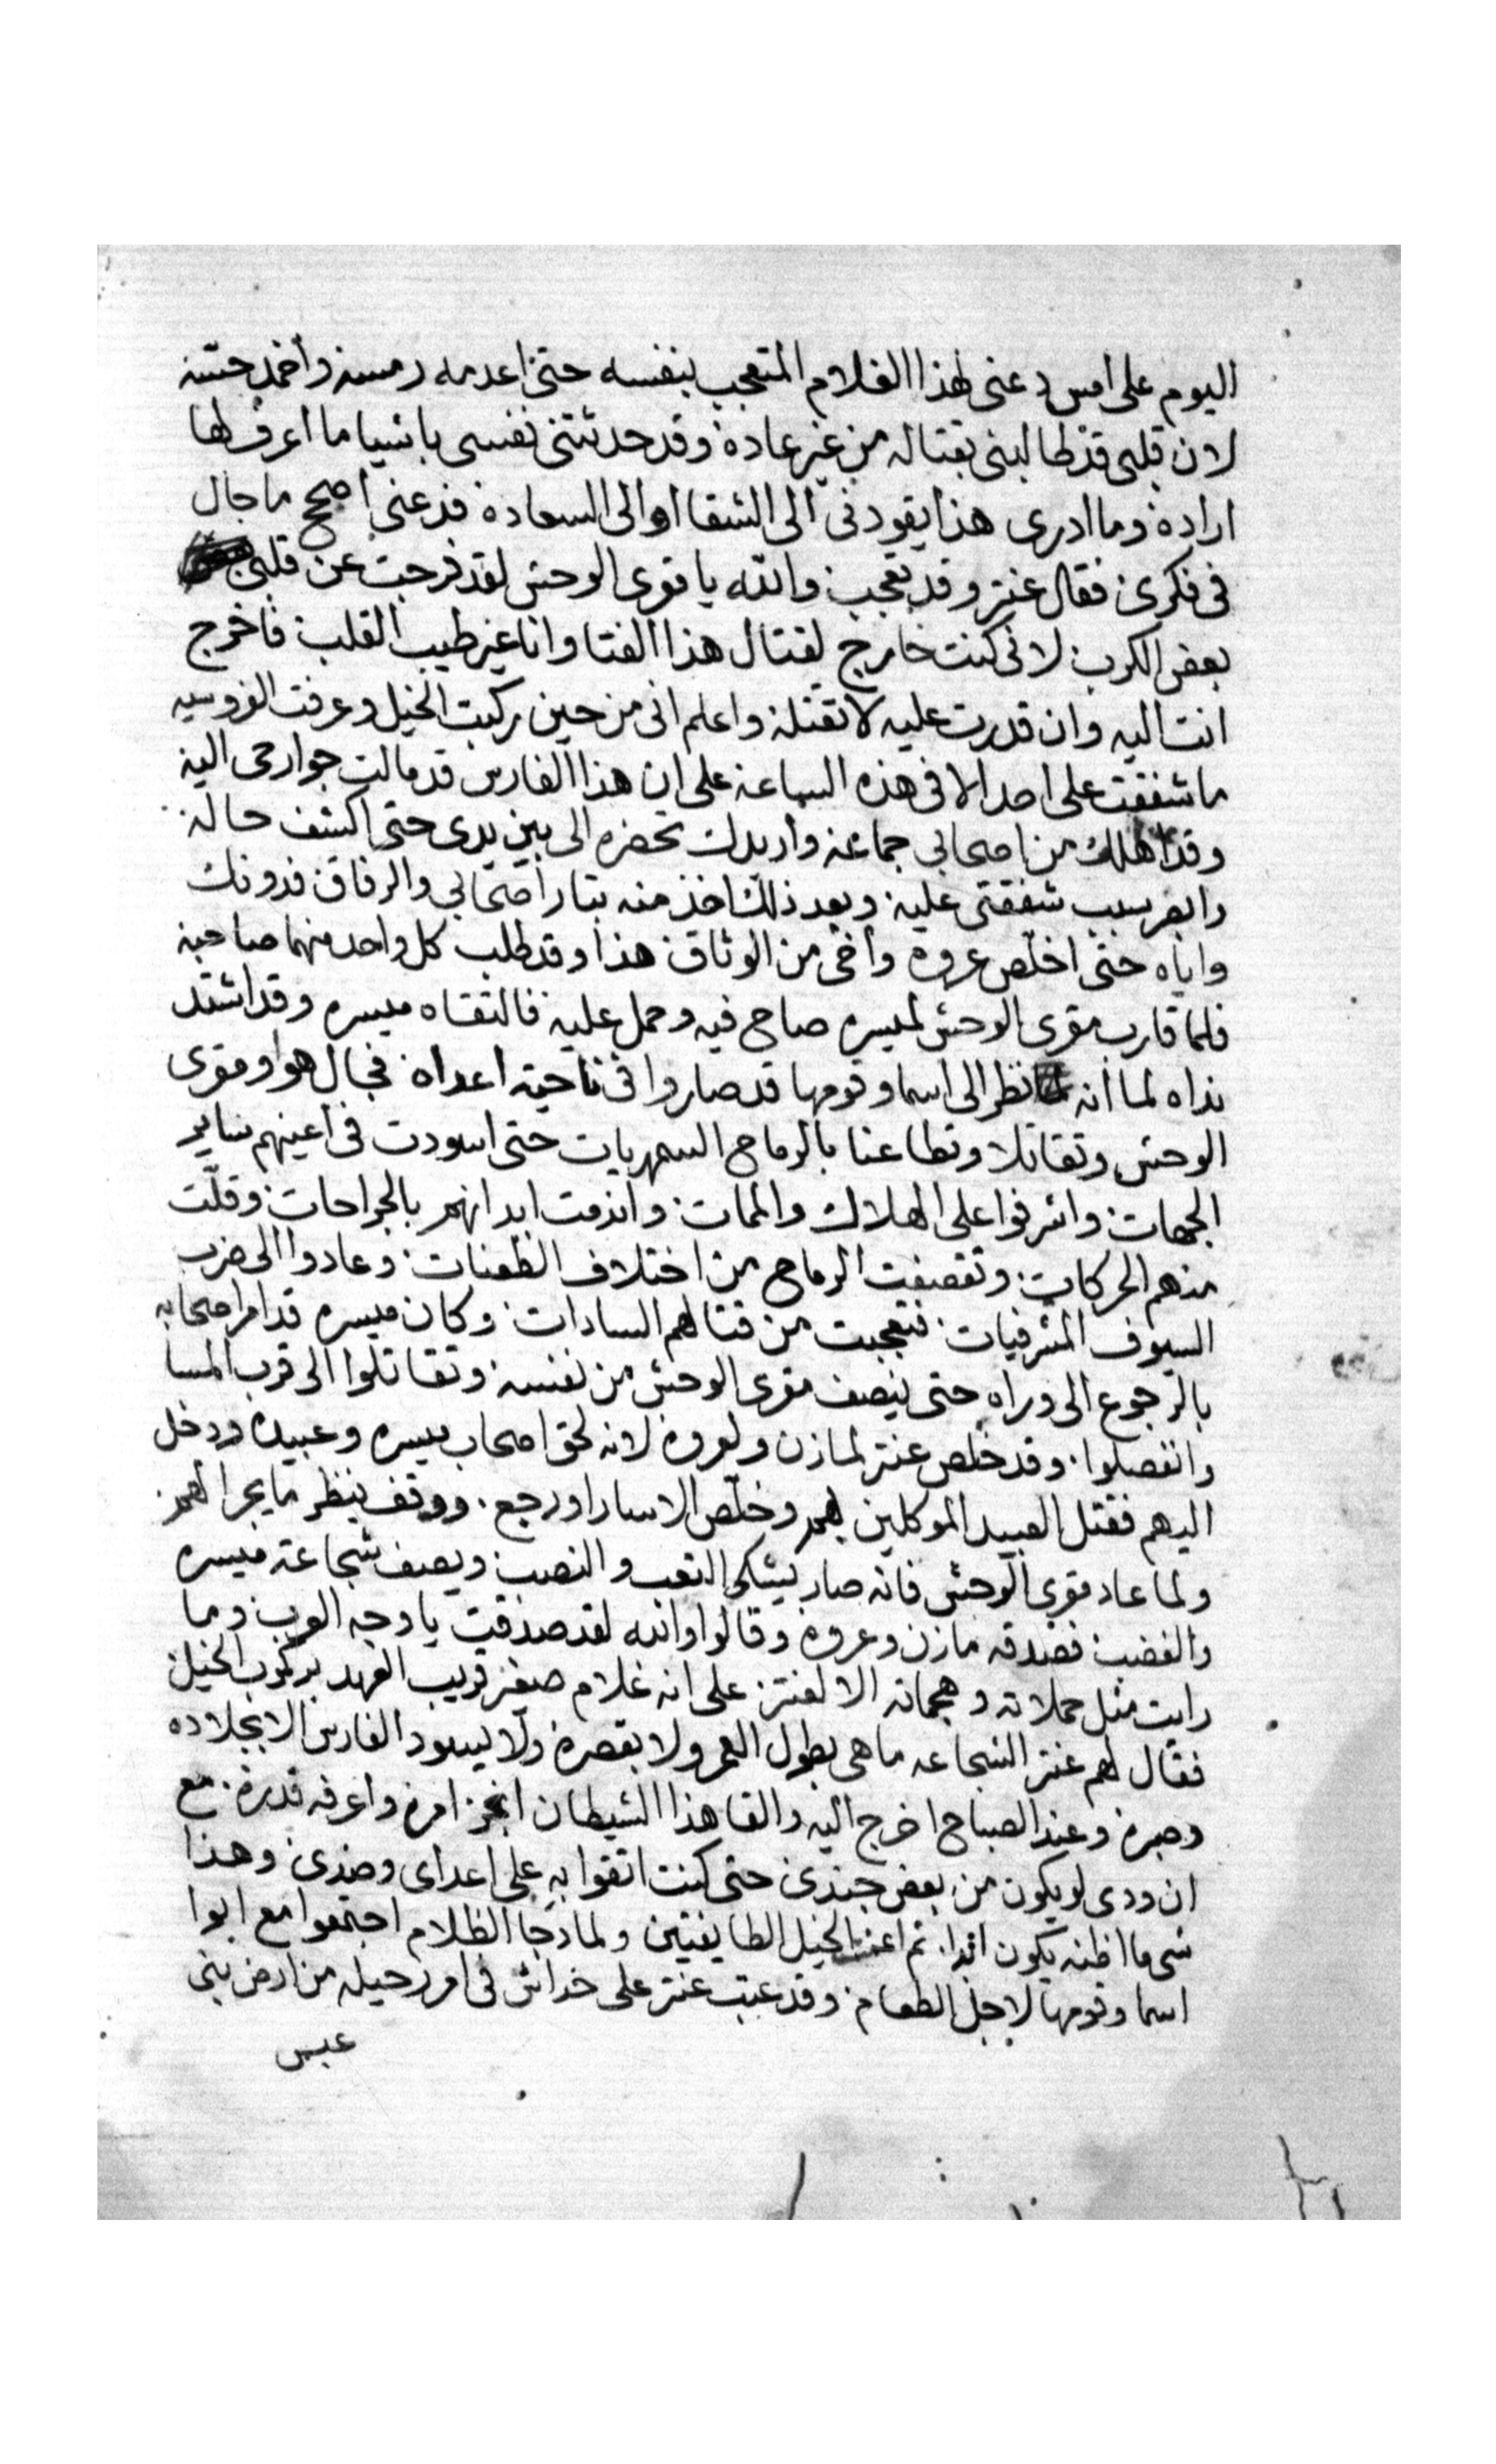 اليوم على امس دعنى لهذا الغلام المتعجب بنفسه حتى اعدمه رمسه وأخمد حسّه
لان قلبى قد طالبنى بقتاله من غير عادة وقد حدثتنى نفسى باشيا ما اعرف لها
ارادة وما ادرى هذا يقودنى الى الشقا او الى السعادة فدعنى اصحح ما جال
فى فكرى فقال عنتر وقد تعجب والله يا مقوى الوحش لقد فرجت عن قلبى
بعض الكرب لانى كنت خارج لقتال هذا الفتا وانا غير طيب القلب فاخرج
انت اليه وان قدرت عليه لا تقتله واعلم انى من حين ركبت الخيل وعرفت الفروسيه
ما شفقت على احد الا فى هذه الساعة على ان هذا الفارس قد مالت جوارحى اليه
وقد اهلك من اصحابى جماعة واريدك تحضره الى بين يدى حتى اكشف حاله
وابصر سبب شفقتى عليه وبعد ذلك اخذ منه بتار اصحابى والرفاق فدونك
واياه حتى اخلّص عروه وأخى من الوثاق هذا وقد طلب كل واحد منهما صاحبه
فلما قارب مقوى الوحش لميسره صاح فيه وحمل عليه فالتقاه ميسره وقد اشتد
نداه لما انه نظر الى اسما وقومها قد صاروا فى ناحية اعداه فجال هو ومقوى
الوحش وتقاتلا وتطاعنا بالرماح السمهريات حتى اسودت فى اعينهم ساير
الجهات واشرفوا على الهلاك والممات واندمت ابدانهم بالجراحات وقلّت
منهم الحركات وتقصفت الرماح من اختلاف الطعنات وعادوا الى ضرب
السيوف المشرفيات فتعجبت من قتالهم السادات وكان ميسره قد امر اصحابه
بالرجوع الى وراه حتى ينصف مقوى الوحش من نفسه وتقاتلوا الى قرب المسا
وانفصلوا وقد خلص عنتر لمازن ولعروة لانه لحق اصحاب ميسره وعبيده ودخل
اليهم فقتل العبيد الموكلين بهم وخلّص الاسارا ورجع ووقف ينظر ما يجرا لهم
ولما عاد مقوى الوحش فانه صار يشكى التعب والنصب ويصف شجاعة ميسره
والغضب فصدقه مازن وعروة وقالوا والله لقد صدقت يا وجه العرب وما
رايت مثل حملاته وهجماته الا لعنتر على انه غلام صغير قريب العهد بركوب الخيل
فقال لهم عنتر الشجاعه ما هى بطول العمر ولا بقصره ولا يسود الفارس الا بجلاده
وصبره وعند الصباح اخرج اليه والقا هذا الشيطان انجز امره واعرفه قدره مع
ان ودى لو يكون من بعض جندى حتى كنت اتقوا به على اعداى وضدى وهذا
شى ما اظنه يكون ابدا ثم الخيل الطايفتين ولما دجا الظلام اجتمعوا مع ابوا
اسما وقومها لاجل الطعام وقد عتب عنتر على خداش فى امر رحيله من ارض بنى
عبس